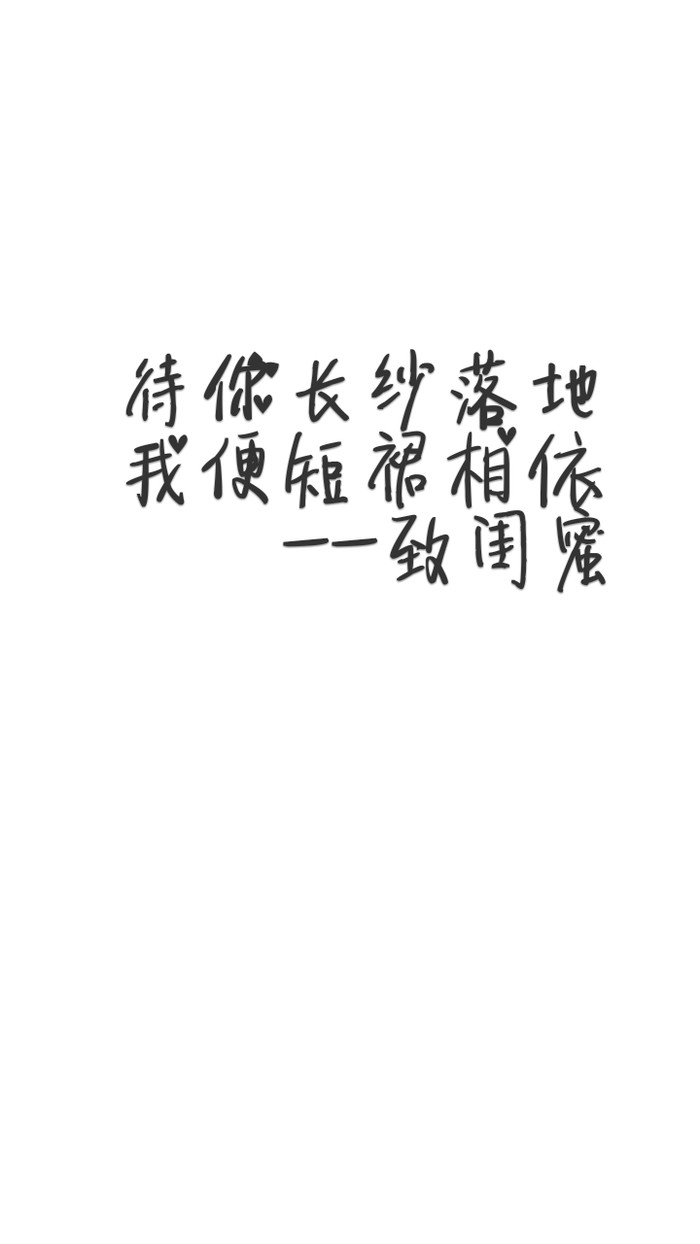 待你长纱落地
我便短裙相依
——致闺蜜